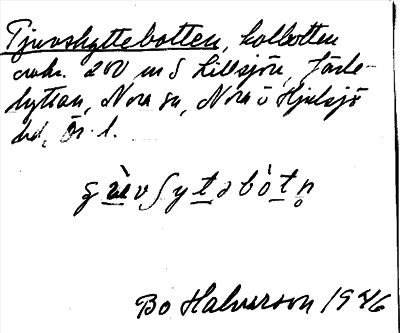 Tjuvshyttebotten, kolbotten
200 m S Lillsjön, Järle-
hyttan, Nora sn, Nora o Hjulsjö
bd, Ör. l.
Bo Halvarson 1946